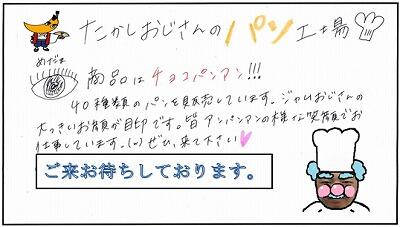 たかしおじさんのパン工場
めだま
商品はチョコパンアン!!!
40種類のパンを販売しています。ジャムおじさんの
大っきいお顔が目印です。皆アンパンマンの様な笑顔でお
仕事しています。(^^)ぜひ、来て下さい
ご来お待ちしております。